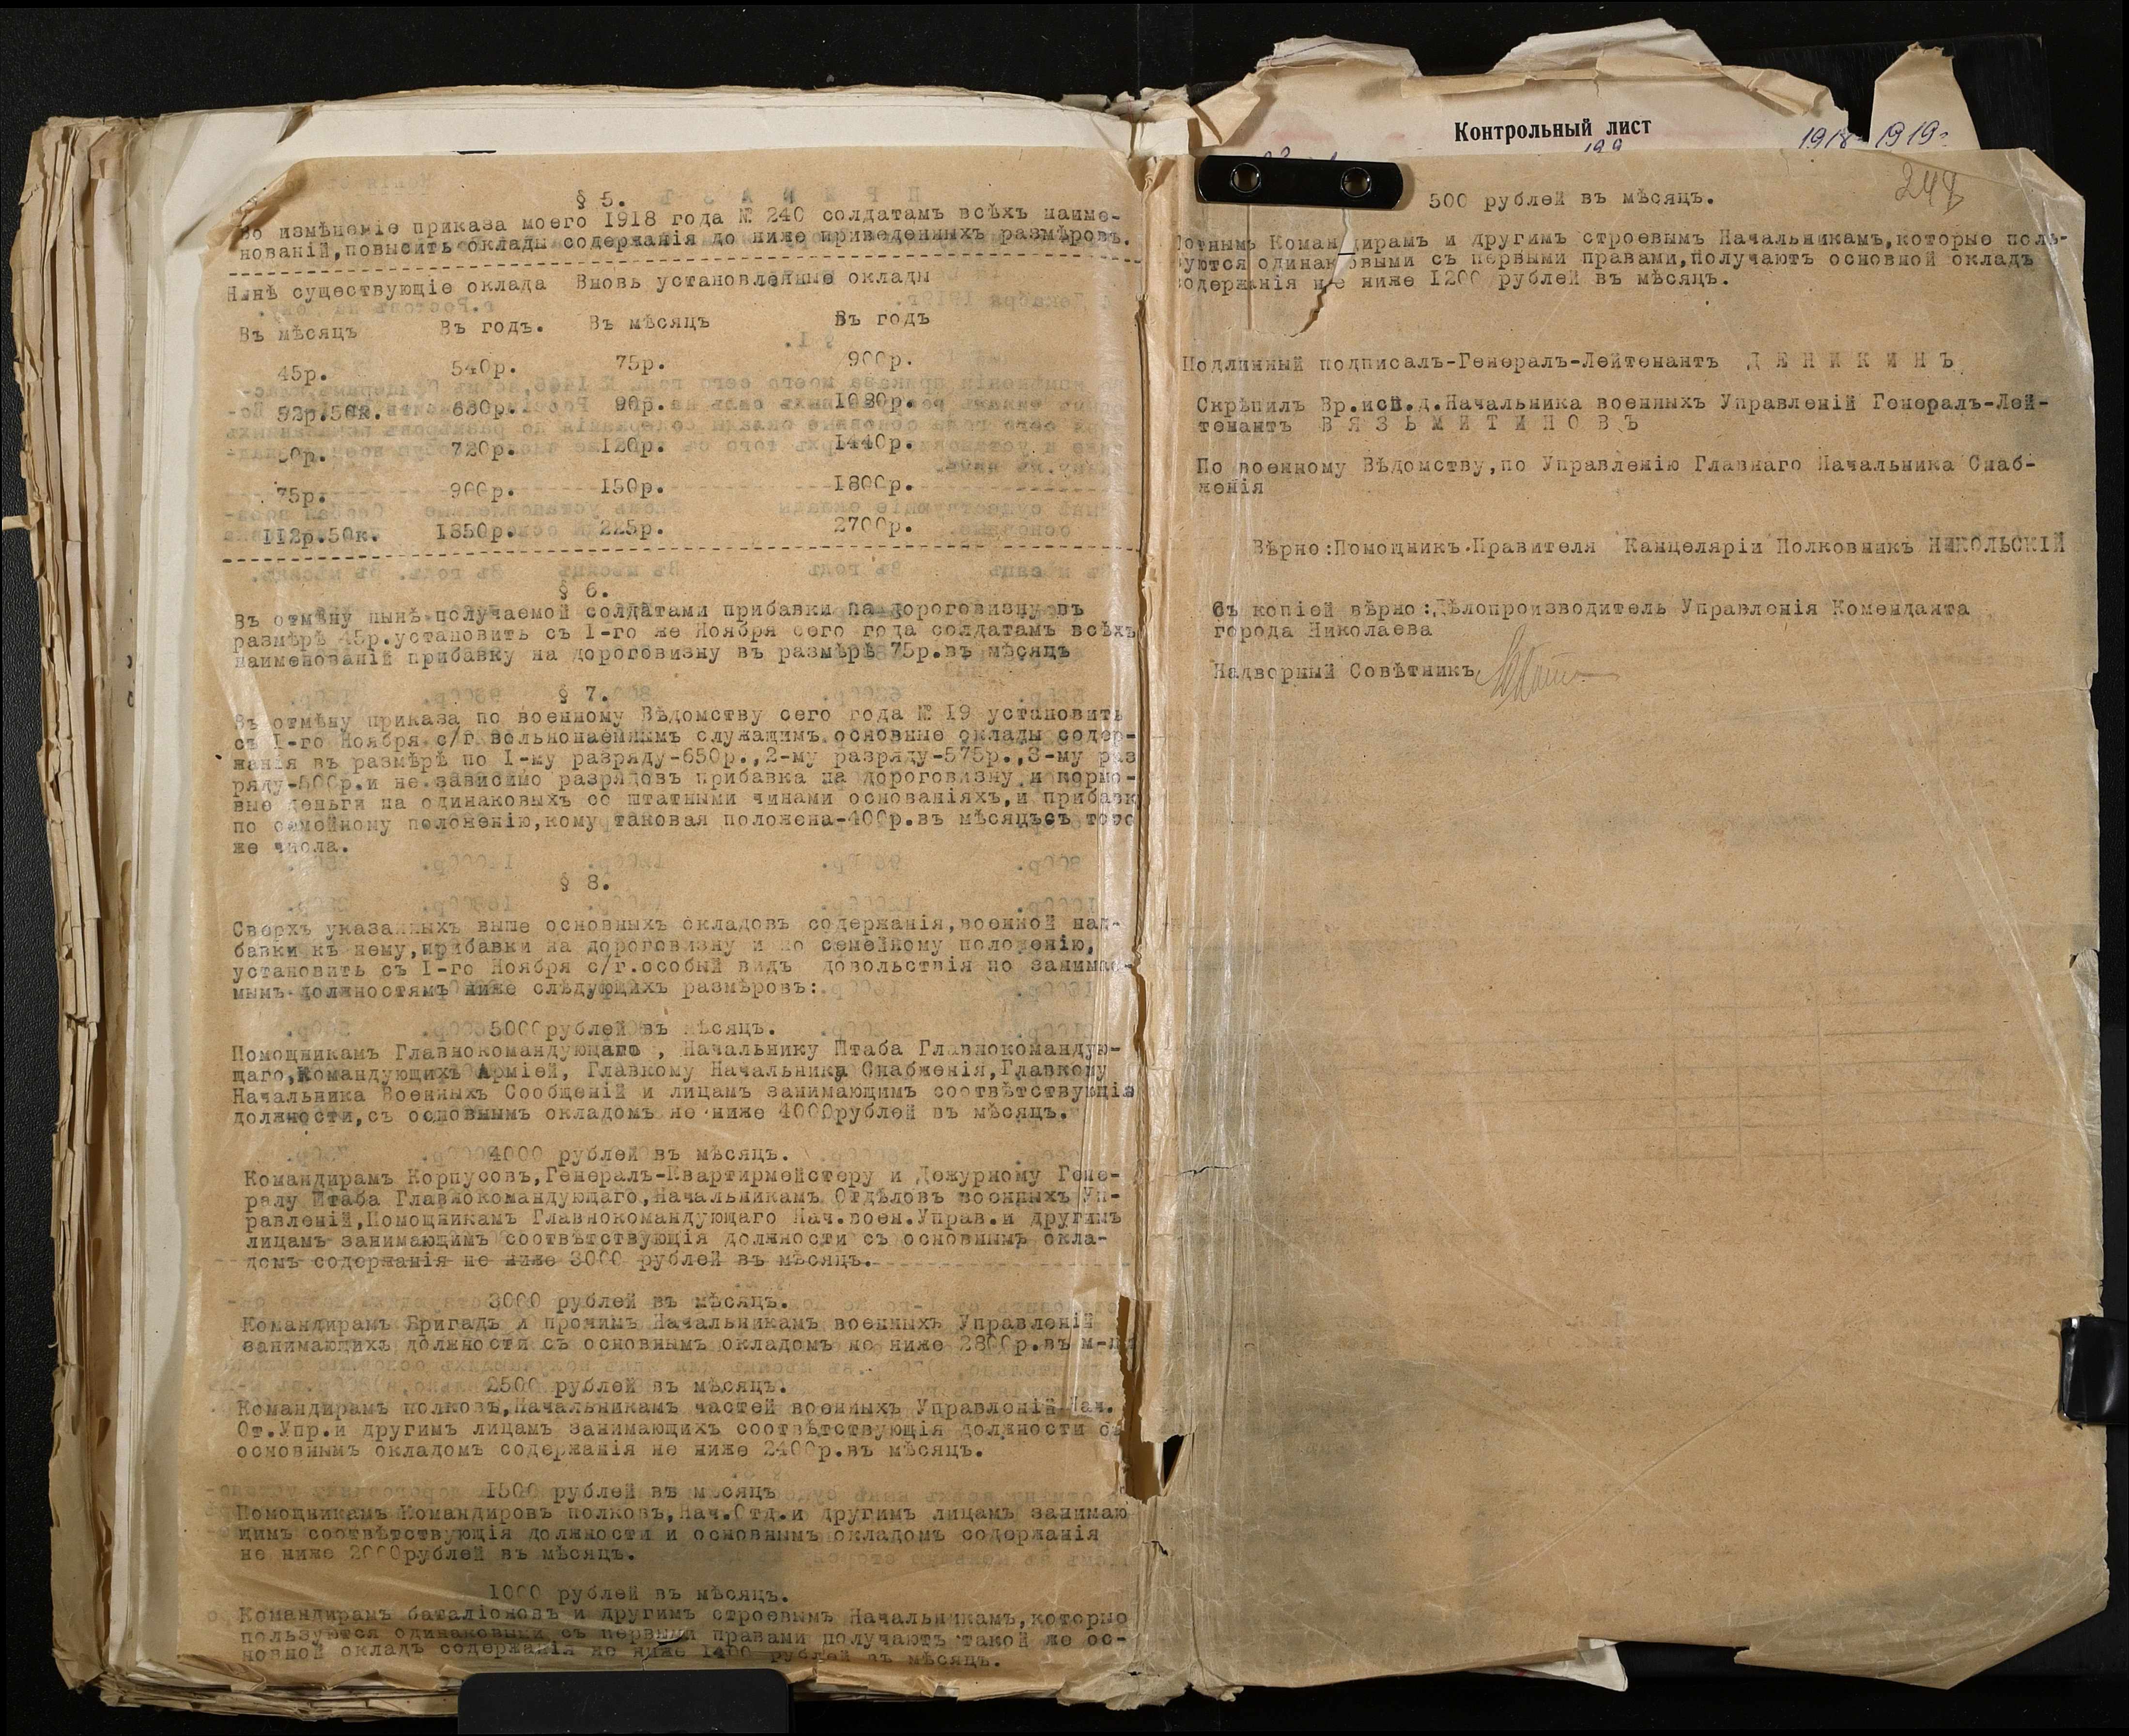 § 5.
Во измѣненіе приказа моего 1918 года № 240 солдатамъ всѣхъ наиме-
нованій,повысить оклады содержанія до ниже приведенныхъ размѣровъ.
Нынѣ существующіе оклада Вновь установленные оклады
Въ мѣсяцъ Въ годъ. Въ мѣсяцъ Въ годъ
45р. 540р. 75р. 900р.
52р.50к. 630р. 90р. 1080р.
720р. 120р. 1440р.
75р. 900р. 150р. 1800р.
112р.50к. 1350р. 225р. 2700р.
§ 6.
Въ отмѣну нынѣ получаемой солдатами прибавки на дороговизну въ
размѣрѣ 45р.установить съ I-го же Ноября сего года солдатамъ всѣхъ
наименованій прибавку на дороговизну въ размѣрѣ 75р.въ мѣсяцъ
§ 7.
Въ отмѣну приказа по военному Вѣдомству сего года № I9 установить
съ I-го Ноября с/г вольнонаемнымъ служащимъ основные оклады содер-
жанія въ размѣрѣ по I-му разряду-650р.,2-му разряду-575р.,3-му раз
ряду-500р.и не зависимо разрядовъ прибавка на дороговизну и кормо-
вые деньги на одинаковыхъ со штатными чинами основаніяхъ,и прибавк
по семейному положенію,кому таковая положена-400р.въ мѣсяцъсъ того
же числа.
§ 8.
Сверхъ указанныхъ выше основныхъ окладовъ содержанія,военной над-
бавки къ нему,прибавки на дороговизну и по семейному положенію,
установить съ I-го Ноября с/г.особый видъ довольствія по занимае-
мымъ должностямъ ниже слѣдующихъ размѣровъ:
5000рублей въ мѣсяцъ.
Помощникамъ Главнокомандующаго , Начальнику Штаба Главнокомандую-
щаго,Командующихъ Арміей, Главкому Начальнику Снабженія,Главкому
Начальника Военныхъ Сообщеній и лицамъ занимающимъ соотвѣтствующія
должности,съ основнымъ окладомъ не ниже 4000рублей въ мѣсяцъ.
4000 рублей въ мѣсяцъ.
Командирамъ Корпусовъ,Генералъ-Квартирмейстеру и Дежурному Гене-
ралу Штаба Главнокомандующаго,Начальникамъ Отдѣловъ военныхъ Уп-
равленій,Помощникамъ Главнокомандующаго Нач.воен.Управ.и другимъ
лицамъ занимающимъ соотвѣтствующія должности съ основнымъ окла-
домъ содержанія не ниже 3000 рублей въ мѣсяцъ.
3000 рублей въ мѣсяцъ.
Командирамъ Бригадъ и прочимъ Начальникамъ военныхъ Управленій
занимающихъ должности съ основнымъ окладомъ не ниже 2800р.въ м-цъ
2500 рублей въ мѣсяцъ.
Командирамъ полковъ,Начальникамъ частей военныхъ Управленій Нач.
От.Упр.и другимъ лицамъ занимающихъ соотвѣтствующія должности съ
основнымъ окладомъ содержанія не ниже 2400р.въ мѣсяцъ.
1500 рублей въ мѣсяцъ
Помощникамъ Командировъ полковъ,Нач.Отд.и другимъ лицамъ занимаю
щимъ соотвѣтствующія должности и основнымъ окладомъ содержанія
не ниже 2000рублей въ мѣсяцъ.
1000 рублей въ мѣсяцъ.
Командирамъ баталіоновъ и другимъ строевымъ Начальникамъ,которые
пользуются одинаковыми съ первыми правами получаютъ такой же ос-
новной окладъ содержанія не ниже 1400 рублей въ мѣсяцъ.
Контрольный лист
1918-1919г
248
500 рублей въ мѣсяцъ.
Ротнымъ Командирамъ и другимъ строевымъ Начальникамъ,которые поль-
зуются одинаковыми съ первыми правами,получаютъ основной окладъ
содержанія не ниже 1200 рублей въ мѣсяцъ.
Подлинный подписалъ-Генералъ-Лейтенантъ Д Е Н И К И Н Ъ
Скрѣпилъ Вр.исп.д.Начальника военныхъ Управленій Генералъ-Лей-
тенантъ В Я З Ь М И Т И Н О В Ъ
По военному Вѣдомству,по Управленію Главнаго Начальника Снаб-
женія
Вѣрно:Помощникъ Правителя Канцеляріи Полковникъ НИКОЛЬСКІЙ
Съ копіей вѣрно:Дѣлопроизводитель Управленія Коменданта
города Николаева
Надворный Совѣтникъ